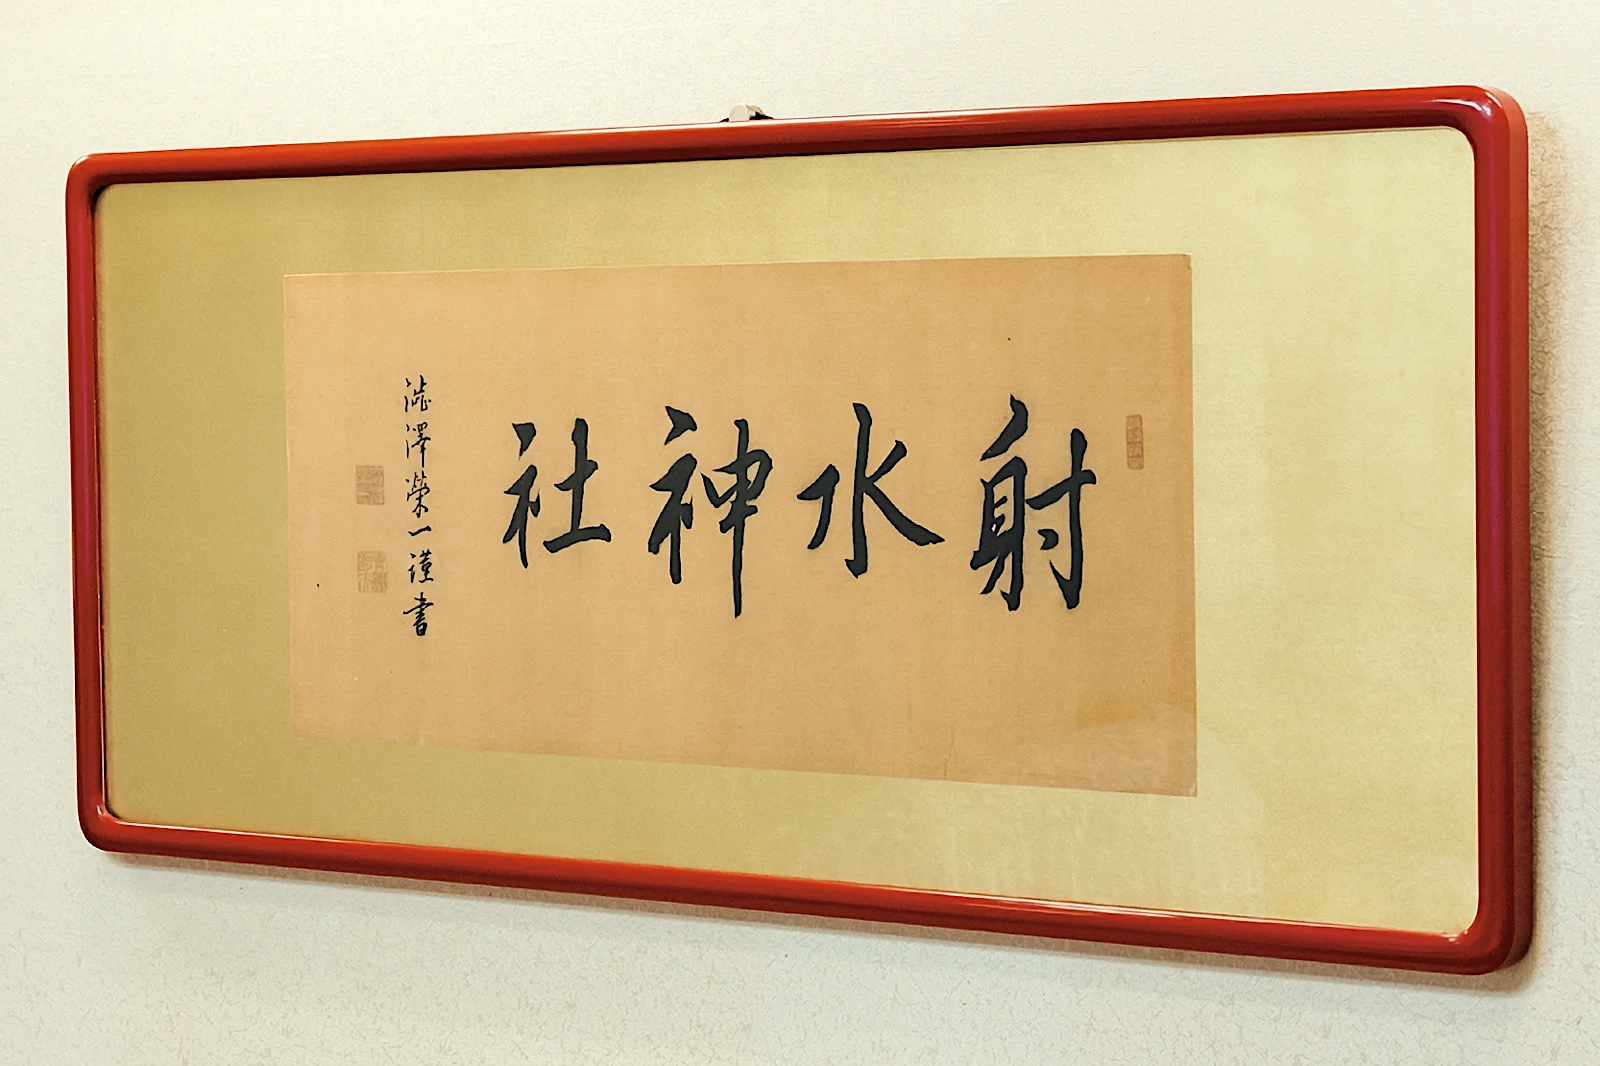 射水神社
澁澤榮一謹書